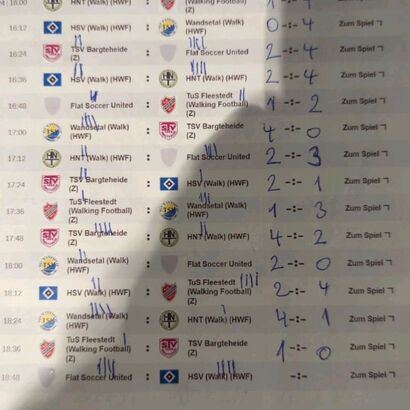 16:00 HNT (Walk) (HWF) (Walking Football) (Z) 1 - 4 Zum Spiel
16:12 HSV (Walk) (HWF) : Wandsetal (Walk) (HWF) 0 - 4 Zum Spiel
16:24 TSV Bargteheide (Z) : Flat Soccer United 2 - 4 Zum Spiel
16:36 HSV (Walk) (HWF) : HNT (Walk) (HWF) 2 - 4 Zum Spiel
16:48 Flat Soccer United : TuS Fleestedt (Walking Football) (Z) 1 -:- 2 Zum Spiel
17:00 Wandsetal (Walk) (HWF) : TSV Bargteheide (Z) 4 -:- 0 Zum Spiel
17:12 HNT (Walk) (HWF) : Flat Soccer United 2 -:- 3 Zum Spiel
17:24 TSV Bargteheide (Z) : HSV (Walk) (HWF) 2 -:- 1 Zum Spiel
17:36 TuS Fleestedt (Walking Football) (Z) : Wandsetal (Walk) (HWF) 1 -:- 3 Zum Spiel
17:48 TSV Bargteheide (Z) : HNT (Walk) (HWF) 4 -:- 2 Zum Spiel
18:00 Wandsetal (Walk) (HWF) : Flat Soccer United 2 -:- 0 Zum Spiel
18:12 HSV (Walk) (HWF) : TuS Fleestedt (Walking Football) (Z) 2 -:- 4 Zum Spiel
18:24 Wandsetal (Walk) (HWF) : HNT (Walk) (HWF) 4 -:- 1 Zum Spiel
18:36 TuS Fleestedt (Walking Football) (Z) : TSV Bargteheide (Z) 1 -:- 0 Zum Spiel
18:48 Flat Soccer United : HSV (Walk) (HWF) -:- Zum Spiel